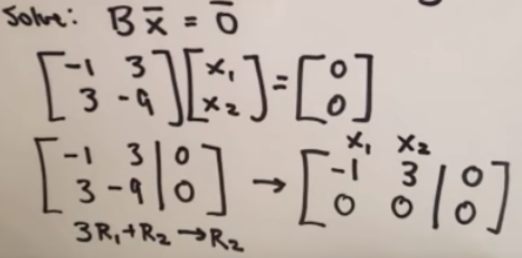 Solve: B x̄ = 0̄
[-1 3 3 -9][x₁ x₂] = [0 0]
x₁ x₂
[-1 3 | 0 3 -9 | 0] → [-1 3 | 0 0 0 | 0]
3R₁+R₂→R₂